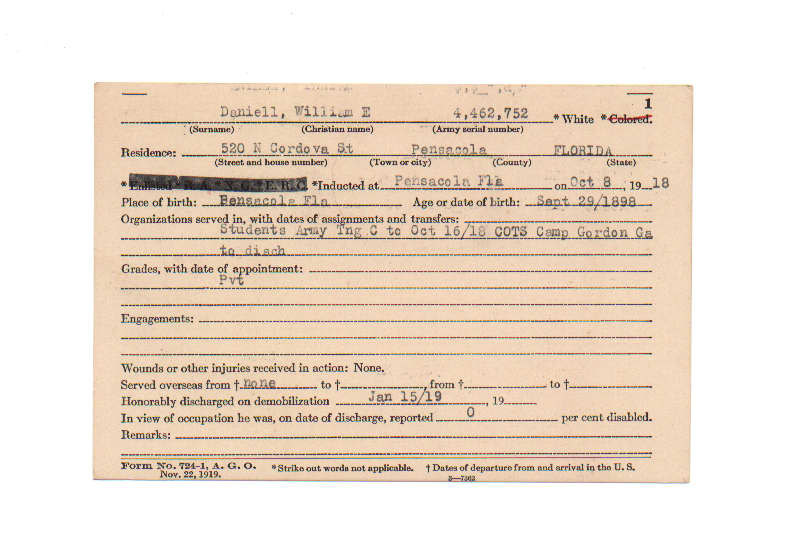 1
Daniell, William E 4,462,752 * White * Colored.
(Surname) (Christian name) (Army serial number)
Residence: 520 N Cordova St Pensacola FLORIDA
(Street and house number) (Town or city) (County) (State)
* Enlisted * R. A. * N. G. * E. R. C. * Inducted at Pensacola Fla on Oct 8 , 19 18
Place of birth: Pensacola Fla Age or date of birth: Sept 29/1898
Organizations served in, with dates of assignments and transfers:
Students Army Tng C to Oct 16/18 COTS Camp Gordon Ga
to disch
Grades, with date of appointment:
Pvt
Engagements:
Wounds or other injuries received in action: None.
Served overseas from † none to † , from † to †
Honorably discharged on demobilization Jan 15/19 , 19
In view of occupation he was, on date of discharge, reported 0 per cent disabled.
Remarks:
Form No. 724-1, A. G. O. * Strike out words not applicable. † Dates of departure from and arrival in the U. S.
Nov. 22, 1919. 3—7362